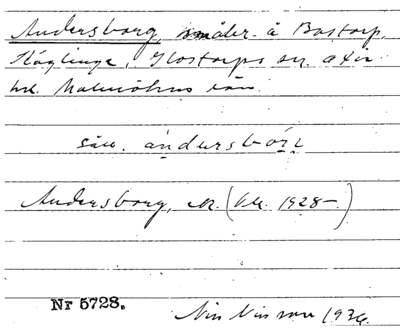 Andersborg, småbr. å Bostorp,
Häglinge, Klostorps sn. Oxie
hd. Malmöhus län.
säv. ándersbórj
Andersborg, er. (bl. 1928-)
Nr 5728.
Nils Nilsson 1936.